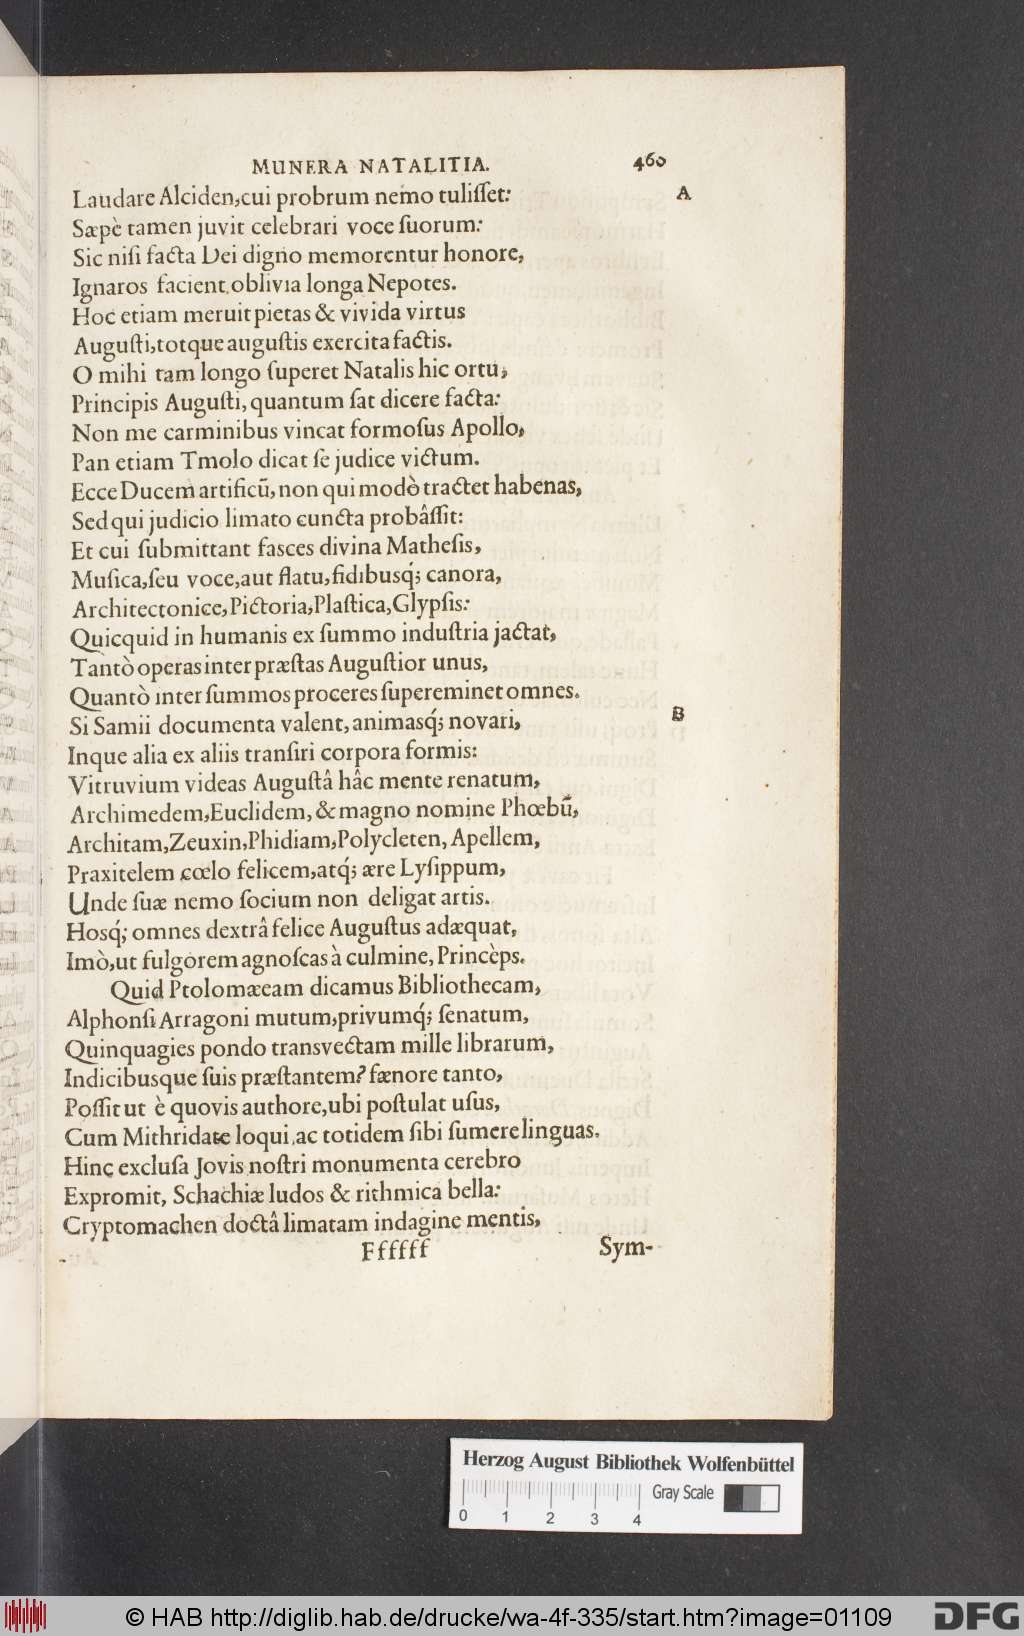 MUNERA NATALITIA. 460
Laudare Alciden,cui probrum nemo tuliſſet: A
Sæpè tamen juvit celebrari voce ſuorum:
Sic niſi facta Dei digno memorentur honore,
Ignaros facient,oblivia longa Nepotes.
Hoc etiam meruit pietas & vivida virtus
Auguſti,totque auguſtis exercita factis.
O mihi tam longo ſuperet Natalis hic ortu,
Principis Auguſti, quantum ſat dicere facta:
Non me carminibus vincat formoſus Apollo,
Pan etiam Tmolo dicat ſe judice victum.
Ecce Ducem artificū, non qui modò tractet habenas,
Sed qui judicio limato cuncta probâſſit:
Et cui ſubmittant faſces divina Matheſis,
Muſica,ſeu voce,aut flatu,fidibusq́; canora,
Architectonice,Pictoria,Plaſtica,Glypſis:
Quicquid in humanis ex ſummo induſtria jactat,
Tantò operas inter præſtas Auguſtior unus,
Quantò inter ſummos proceres ſupereminet omnes.
Si Samii documenta valent, animasq́; novari, B
Inque alia ex aliis tranſiri corpora formis:
Vitruvium videas Auguſtâ hâc mente renatum,
Archimedem,Euclidem, & magno nomine Phœbū,
Architam,Zeuxin,Phidiam,Polycleten, Apellem,
Praxitelem cœlo felicem,atq́; ære Lyſippum,
Unde ſuæ nemo ſocium non deligat artis.
Hosq́; omnes dextrâ felice Auguſtus adæquat,
Imò,ut fulgorem agnoſcas à culmine, Princèps.
Quid Ptolomæeam dicamus Bibliothecam,
Alphonſi Arragoni mutum,privumq́; ſenatum,
Quinquagies pondo transvectam mille librarum,
Indicibusque ſuis præſtantem? fænore tanto,
Poſſit ut è quovis authore,ubi poſtulat uſus,
Cum Mithridate loqui,ac totidem ſibi ſumere linguas.
Hinc excluſa Jovis noſtri monumenta cerebro
Expromit, Schachiæ ludos & rithmica bella:
Cryptomachen doctâ limatam indagine mentis,
Ffffff Sym-
Herzog August Bibliothek Wolfenbüttel
Gray Scale
0 1 2 3 4
© HAB http://diglib.hab.de/drucke/wa-4f-335/start.htm?image=01109
DFG